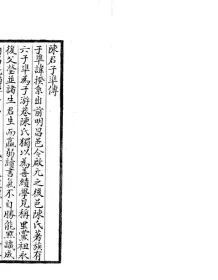 陳君子準傳
子準諱揆系出前明昌邑令啟元之後邑陳氏著族有
六子準為子游巷陳氏獨以為善績學見稱里黨祖永
復父瑩並諸生君生而羸弱讀書氣不自勝能默識成